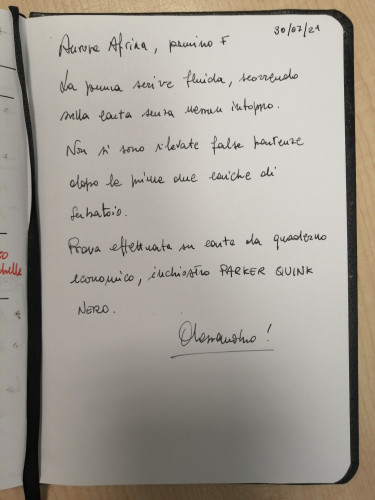 30/07/21
Aurora Africa, pennino F
La penna scrive fluida, scorrendo
sulla carta senza nessun intoppo.
Non si sono rilevate false partenze
dopo le prime due cariche di
serbatoio.
Prova effettuata su carta da quaderno
economico, inchiostro PARKER QUINK
NERO.
Alessandro!